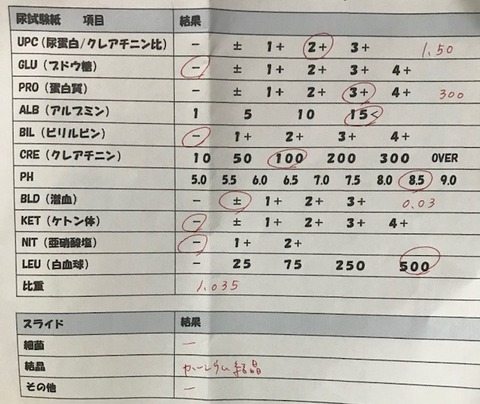 尿試験紙 項目 結果
UPC(尿蛋白/クレアチニン比) - ± 1+ 2+ 3+ 1.50
GLU(ブドウ糖) - ± 1+ 2+ 3+ 4+
PRO(蛋白質) - ± 1+ 2+ 3+ 4+ 300
ALB(アルブミン) 1 5 10 15<
BIL(ビリルビン) - 1+ 2+ 3+ 4+
CRE(クレアチニン) 10 50 100 200 300 OVER
PH 5.0 5.5 6.0 6.5 7.0 7.5 8.0 8.5 9.0
BLD(潜血) - ± 1+ 2+ 3+ 0.03
KET(ケトン体) - ± 1+ 2+ 3+ 4+
NIT(亜硝酸塩) - 1+ 2+
LEU(白血球) - 25 75 250 500
比重 1.035
スライド 結果
細菌 -
結晶 結晶
その他 -